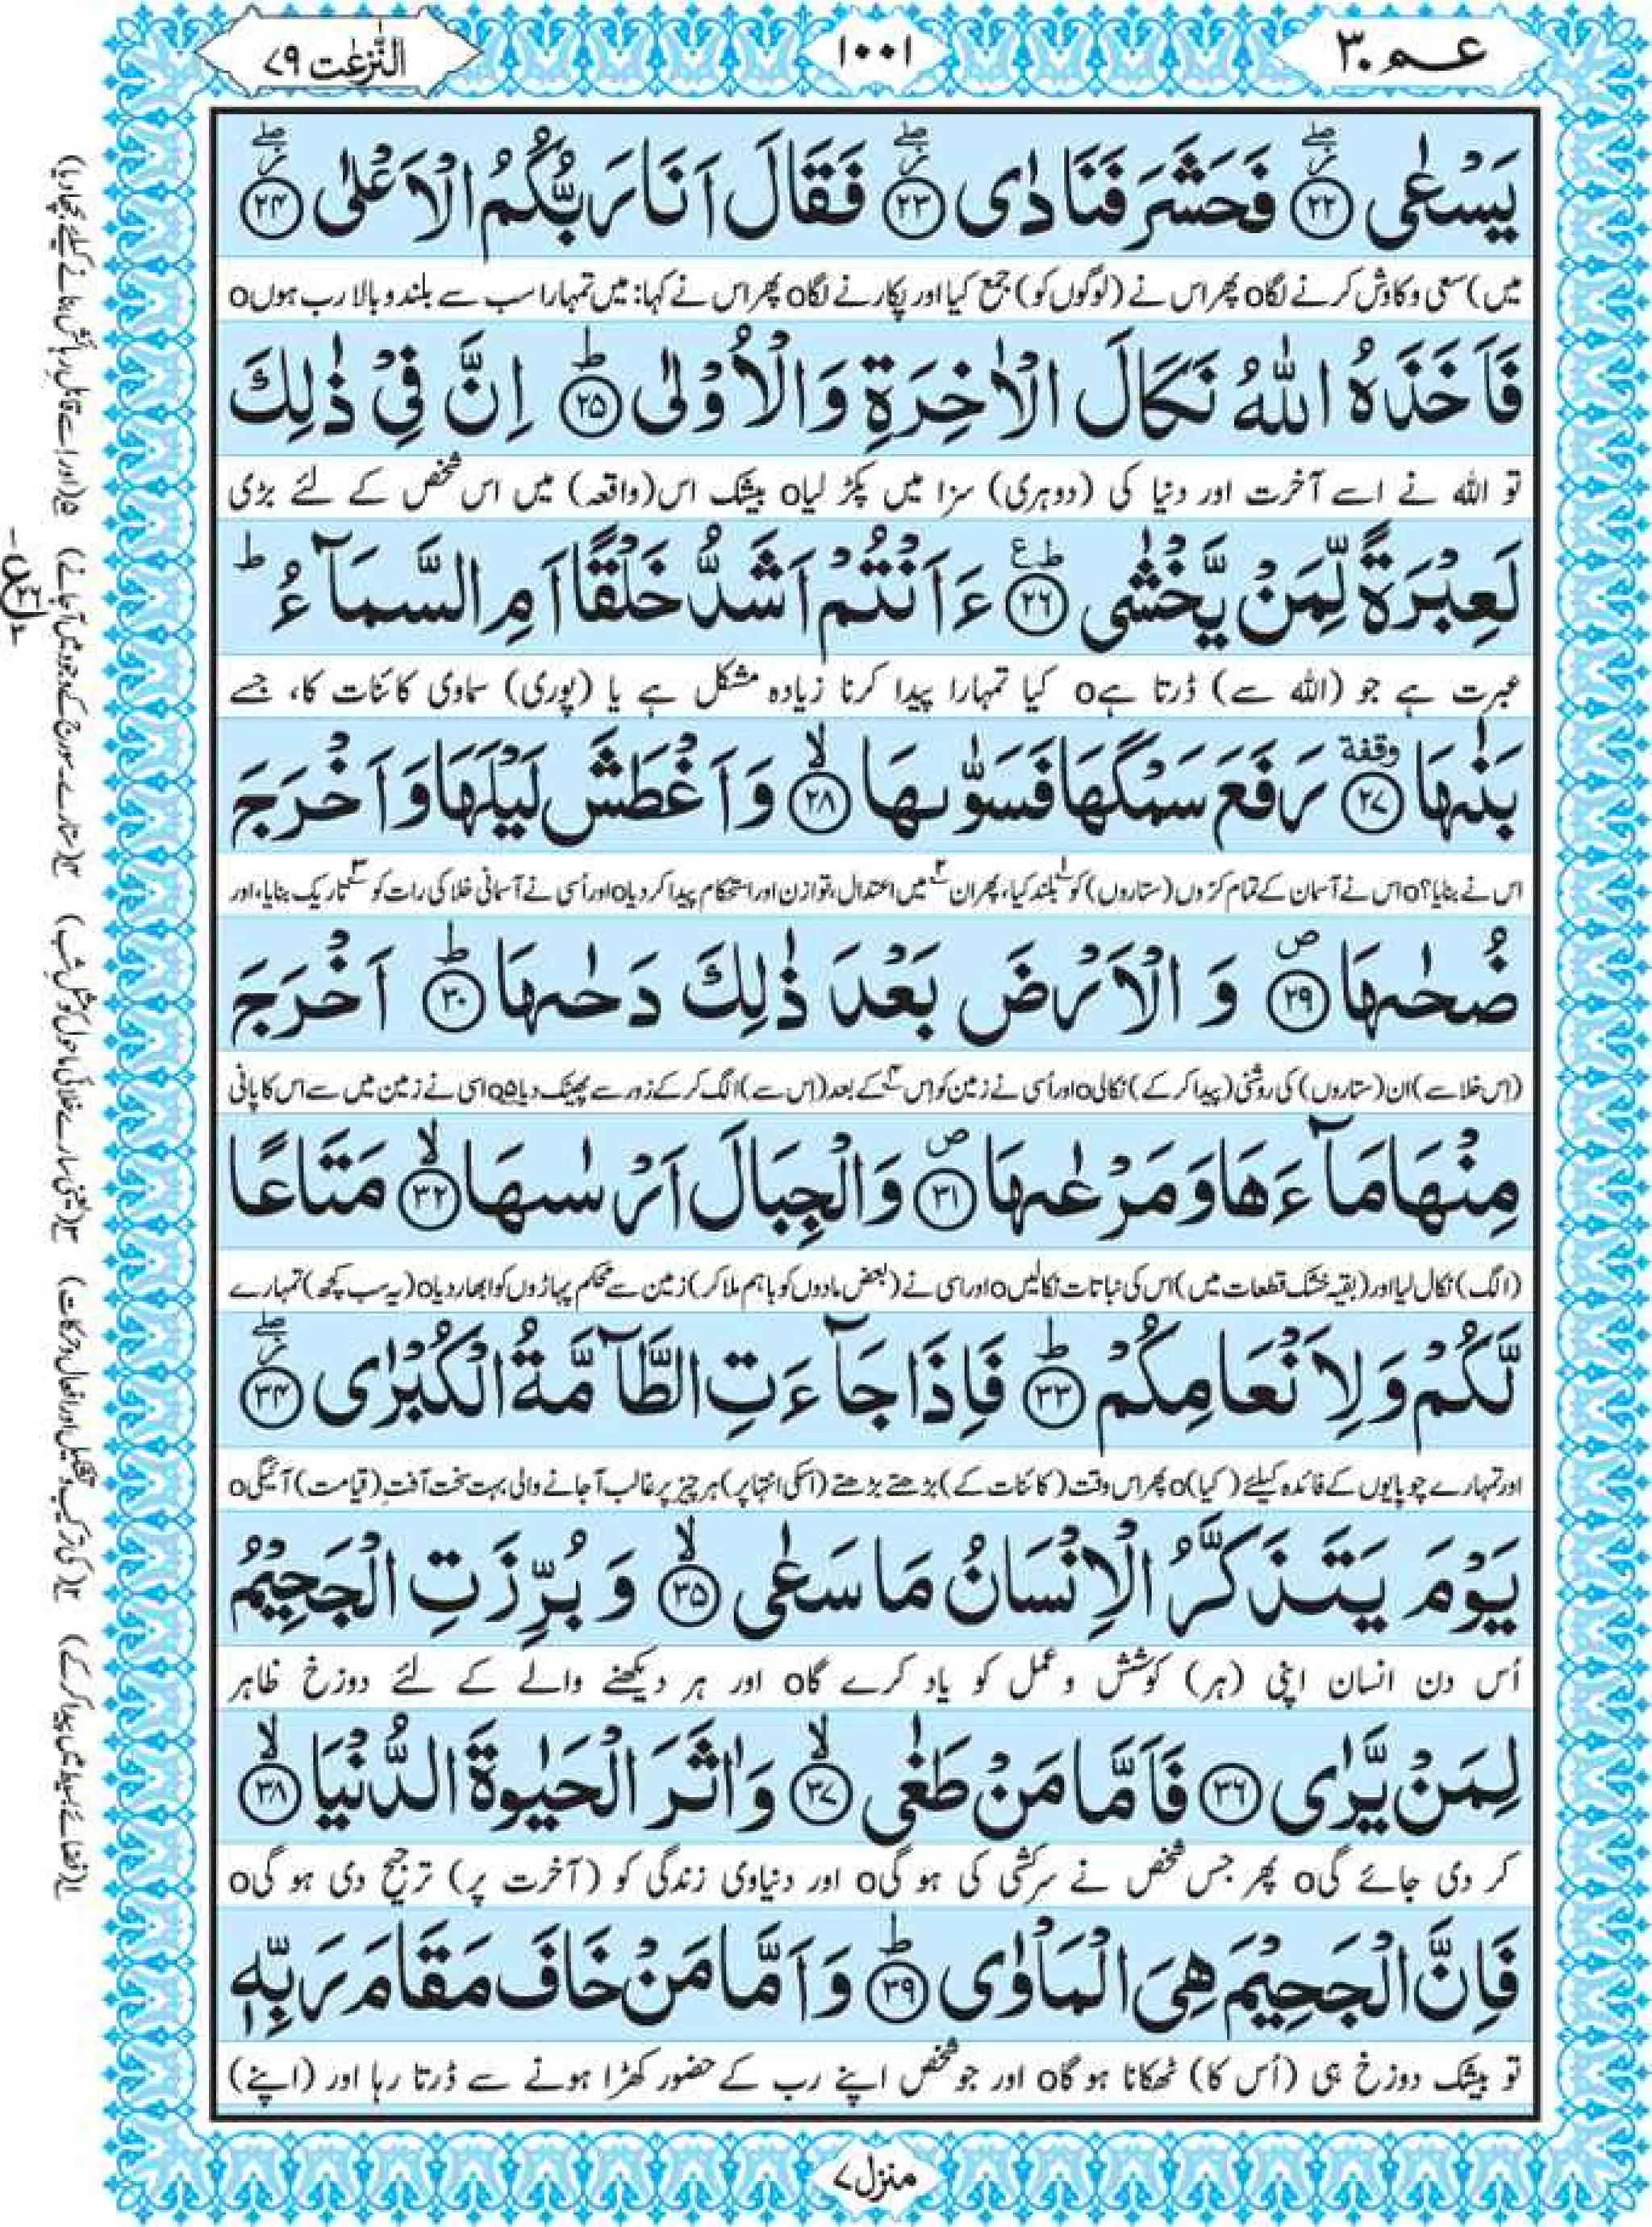 عم ٣٠
١٠٠١
النّٰزعٰت ٧٩
يَسْعٰى ﴿٢٢﴾ فَحَشَرَ فَنَادٰى ﴿٢٣﴾ فَقَالَ اَنَا رَبُّكُمُ الْاَعْلٰى ﴿٢٤﴾
میں) سعی و کاوش کرنے لگاo پھر اس نے (لوگوں کو) جمع کیا اور پکارنے لگاo پھر اس نے کہا: میں تمہارا سب سے بلند و بالا رب ہوںo
فَاَخَذَهُ اللّٰهُ نَكَالَ الْاٰخِرَةِ وَالْاُوْلٰى ﴿٢٥﴾ اِنَّ فِيْ ذٰلِكَ
تو اللہ نے اسے آخرت اور دنیا کی (دوہری) سزا میں پکڑ لیاo بیشک اس (واقعہ) میں اس شخص کے لئے بڑی
لَعِبْرَةً لِّمَنْ يَّخْشٰى ﴿٢٦﴾ ءَاَنْتُمْ اَشَدُّ خَلْقًا اَمِ السَّمَآءُ ؕ
عبرت ہے جو (اللہ سے) ڈرتا ہےo کیا تمہارا پیدا کرنا زیادہ مشکل ہے یا (پوری) سماوی کائنات کا، جسے
بَنٰىهَا ﴿٢٧﴾ وقفة رَفَعَ سَمْكَهَا فَسَوّٰىهَا ﴿٢٨﴾ وَاَغْطَشَ لَيْلَهَا وَاَخْرَجَ
اس نے بنایا؟o اس نے آسمان کے تمام کرّوں (ستاروں) کو ۱ بلند کیا، پھر ان ۲ میں اعتدال، توازن اور استحکام پیدا کر دیاo اور اُسی نے آسمانی خلا کی رات کو ۳ تاریک بنایا، اور
ضُحٰىهَا ﴿٢٩﴾ وَ الْاَرْضَ بَعْدَ ذٰلِكَ دَحٰىهَا ﴿٣٠﴾ اَخْرَجَ
(اس خلا سے) ان (ستاروں) کی روشنی (پیدا کر کے) نکالیo اور اُسی نے زمین کو اِس ۴ کے بعد (اس سے) الگ کر کے زور سے پھینک دیا ۵o اسی نے زمین میں سے اس کا پانی
مِنْهَا مَآءَهَا وَمَرْعٰىهَا ﴿٣١﴾ وَالْجِبَالَ اَرْسٰىهَا ﴿٣٢﴾ مَتَاعًا
(الگ) نکال لیا اور (بقیہ خشک قطعات میں) اس کی نباتات نکالیںo اور اسی نے (بعض مادوں کو باہم ملا کر) زمین سے محکم پہاڑوں کو ابھار دیاo (یہ سب کچھ) تمہارے
لَّكُمْ وَلِاَنْعَامِكُمْ ﴿٣٣﴾ فَاِذَا جَآءَتِ الطَّآمَّةُ الْكُبْرٰى ﴿٣٤﴾
اور تمہارے چوپایوں کے فائدہ کیلئے (کیا)o پھر اس وقت (کائنات کے) بڑھتے بڑھتے (اسکی انتہا پر) ہر چیز پر غالب آ جانے والی بہت سخت آفتِ (قیامت) آئیگیo
يَوْمَ يَتَذَكَّرُ الْاِنْسَانُ مَا سَعٰى ﴿٣٥﴾ وَ بُرِّزَتِ الْجَحِيْمُ
اُس دن انسان اپنی (ہر) کوشش و عمل کو یاد کرے گاo اور ہر دیکھنے والے کے لئے دوزخ ظاہر
لِمَنْ يَّرٰى ﴿٣٦﴾ فَاَمَّا مَنْ طَغٰى ﴿٣٧﴾ وَاٰثَرَ الْحَيٰوةَ الدُّنْيَا ﴿٣٨﴾
کر دی جائے گیo پھر جس شخص نے سرکشی کی ہو گیo اور دنیاوی زندگی کو (آخرت پر) ترجیح دی ہو گیo
فَاِنَّ الْجَحِيْمَ هِيَ الْمَاْوٰى ﴿٣٩﴾ وَاَمَّا مَنْ خَافَ مَقَامَ رَبِّهٖ
تو بیشک دوزخ ہی (اُس کا) ٹھکانا ہو گاo اور جو شخص اپنے رب کے حضور کھڑا ہونے سے ڈرتا رہا اور (اپنے)
منزل ٧
۱ (فضائے بسیط میں پیدا کر کے) ۲ (کی ترکیب و تشکیل اور افعال و حرکات) ۳ (یعنی سارے خلائی ماحول کو مثلِ شب) ۴ (ستارے۔ سورج کے وجود میں آ جانے) ۵ (اور اسے قابلِ رہائش بنانے کیلئے بچھا دیا)